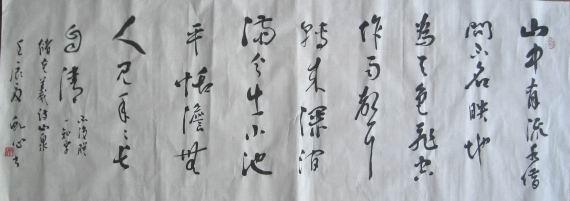 山中有流水借
问不名映地
为天色飞空
作雨声
转来深涧
满分出小池
平恬澹無
人见年々长
自清
不後脱
一知字
储光羲诗山泉
壬辰夏